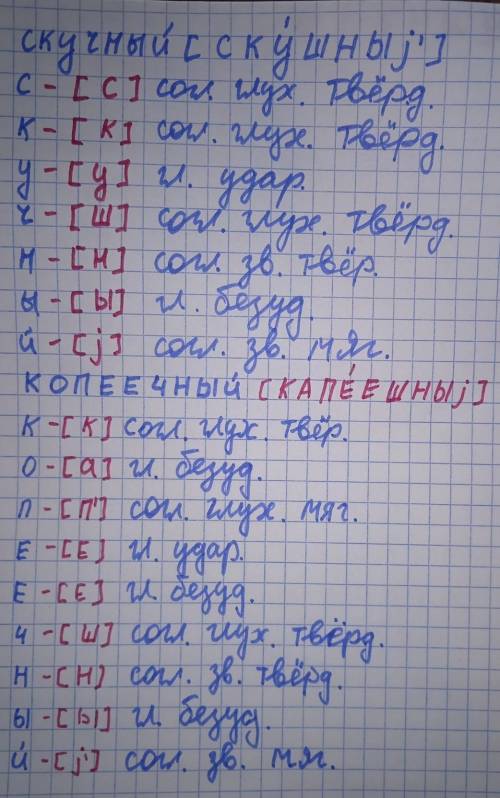 скучный [скушныj']
с - [с] согл. глух. твёрд.
к - [к] согл. глух. твёрд.
у - [у] гл. удар.
ч - [ш] согл. глух. твёрд.
н - [н] согл. зв. твёр.
ы - [ы] гл. безуд.
й - [j] согл. зв. мяг.
копеечный [капéешныj]
к - [к] согл. глух. твёр.
о - [а] гл. безуд.
п - [п'] согл. глух. мяг.
е - [е] гл. удар.
е - [е] гл. безуд.
ч - [ш] согл. глух. твёрд.
н - [н] согл. зв. твёрд.
ы - [ы] гл. безуд.
й - [j'] согл. зв. мяг.